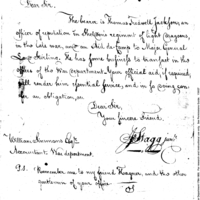 Dear Sir,
The bearer is Thomas Tredwell Jackson, an
officer of reputation in Sheldon's regiment of Light Dragoons,
in the late war, and an aid de Camp to Major General
Lord Stirling. He has some business to transact in the
office of the War department. Your official aid, if required,
will render him essential service, and in so doing con-
fer an obligation, on
Dear Sir,
Your sincere Friend,
William Simmons Esqr.
Accountant, War department.
P.S. Remember me to my friend and the other
gentlemen of your office